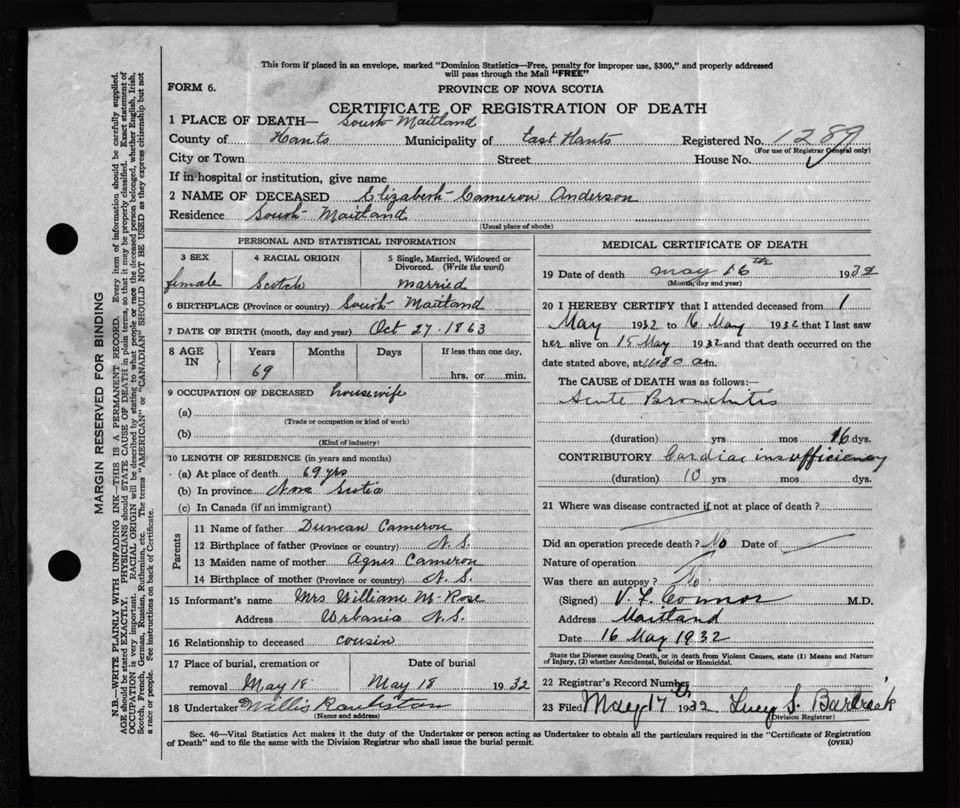 This form if placed in an envelope, marked "Dominion Statistics—Free, penalty for improper use, $300," and properly addressed
will pass through the Mail "FREE"
FORM 6.
PROVINCE OF NOVA SCOTIA
CERTIFICATE OF REGISTRATION OF DEATH
1 PLACE OF DEATH— South Maitland
County of Hants Municipality of East Hants Registered No. 1289
(For use of Registrar General only)
City or Town Street House No.
If in hospital or institution, give name
2 NAME OF DECEASED Elizabeth Cameron Anderson
Residence South Maitland
(Usual place of abode)
PERSONAL AND STATISTICAL INFORMATION
3 SEX 4 RACIAL ORIGIN 5 Single, Married, Widowed or
Divorced. (Write the word)
female Scotch married
6 BIRTHPLACE (Province or country) South Maitland
7 DATE OF BIRTH (month, day and year) Oct 27. 1863
8 AGE IN Years Months Days If less than one day,
69 hrs. or min.
9 OCCUPATION OF DECEASED housewife
(a)
(Trade or occupation or kind of work)
(b)
(Kind of industry)
10 LENGTH OF RESIDENCE (in years and months)
(a) At place of death 69 yrs
(b) In province Nova Scotia
(c) In Canada (if an immigrant)
Parents
11 Name of father Duncan Cameron
12 Birthplace of father (Province or country) N. S.
13 Maiden name of mother Agnes Cameron
14 Birthplace of mother (Province or country) N. S.
15 Informant's name Mrs William M. Rose
Address Urbania N.S.
16 Relationship to deceased cousin
17 Place of burial, cremation or Date of burial
removal May 18 May 18 1932
18 Undertaker Willis
(Name and address)
MEDICAL CERTIFICATE OF DEATH
19 Date of death May 16th 1932
(Month, day and year)
20 I HEREBY CERTIFY that I attended deceased from 1
May 1932 to 16 May 1932 that I last saw
her alive on 15 May 1932 and that death occurred on the
date stated above, at 11.30 a m.
The CAUSE OF DEATH was as follows:—
Acute Bronchitis
(duration) yrs mos 16 dys.
CONTRIBUTORY Cardiac insufficiency
(duration) 10 yrs mos dys.
21 Where was disease contracted if not at place of death?
Did an operation precede death? No Date of
Nature of operation
Was there an autopsy? No
(Signed) V. F. Connor M.D.
Address Maitland
Date 16 May 1932
State the Disease causing Death, or in death from Violent Causes, state (1) Means and Nature
of Injury, (2) whether Accidental, Suicidal or Homicidal.
22 Registrar's Record Number
23 Filed May 17th 1932 Lucy S.
Division Registrar)
Sec. 46—Vital Statistics Act makes it the duty of the Undertaker or person acting as Undertaker to obtain all the particulars required in the "Certificate of Registration
of Death" and to file the same with the Division Registrar who shall issue the burial permit.
(OVER)
MARGIN RESERVED FOR BINDING
N.B.—WRITE PLAINLY WITH UNFADING INK—THIS IS A PERMANENT RECORD. Every item of information should be carefully supplied.
AGE should be stated EXACTLY. PHYSICIANS should STATE CAUSE OF DEATH in plain terms, so that it may be properly classified. Exact statement of
OCCUPATION is very important. RACIAL ORIGIN will be described by stating to what people or race the deceased person belonged, whether English, Irish,
Scotch, French, German, Russian, Ruthenian, etc. The terms "AMERICAN" or "CANADIAN" SHOULD NOT BE USED as they express citizenship but not
a race or people. See instructions on back of Certificate.